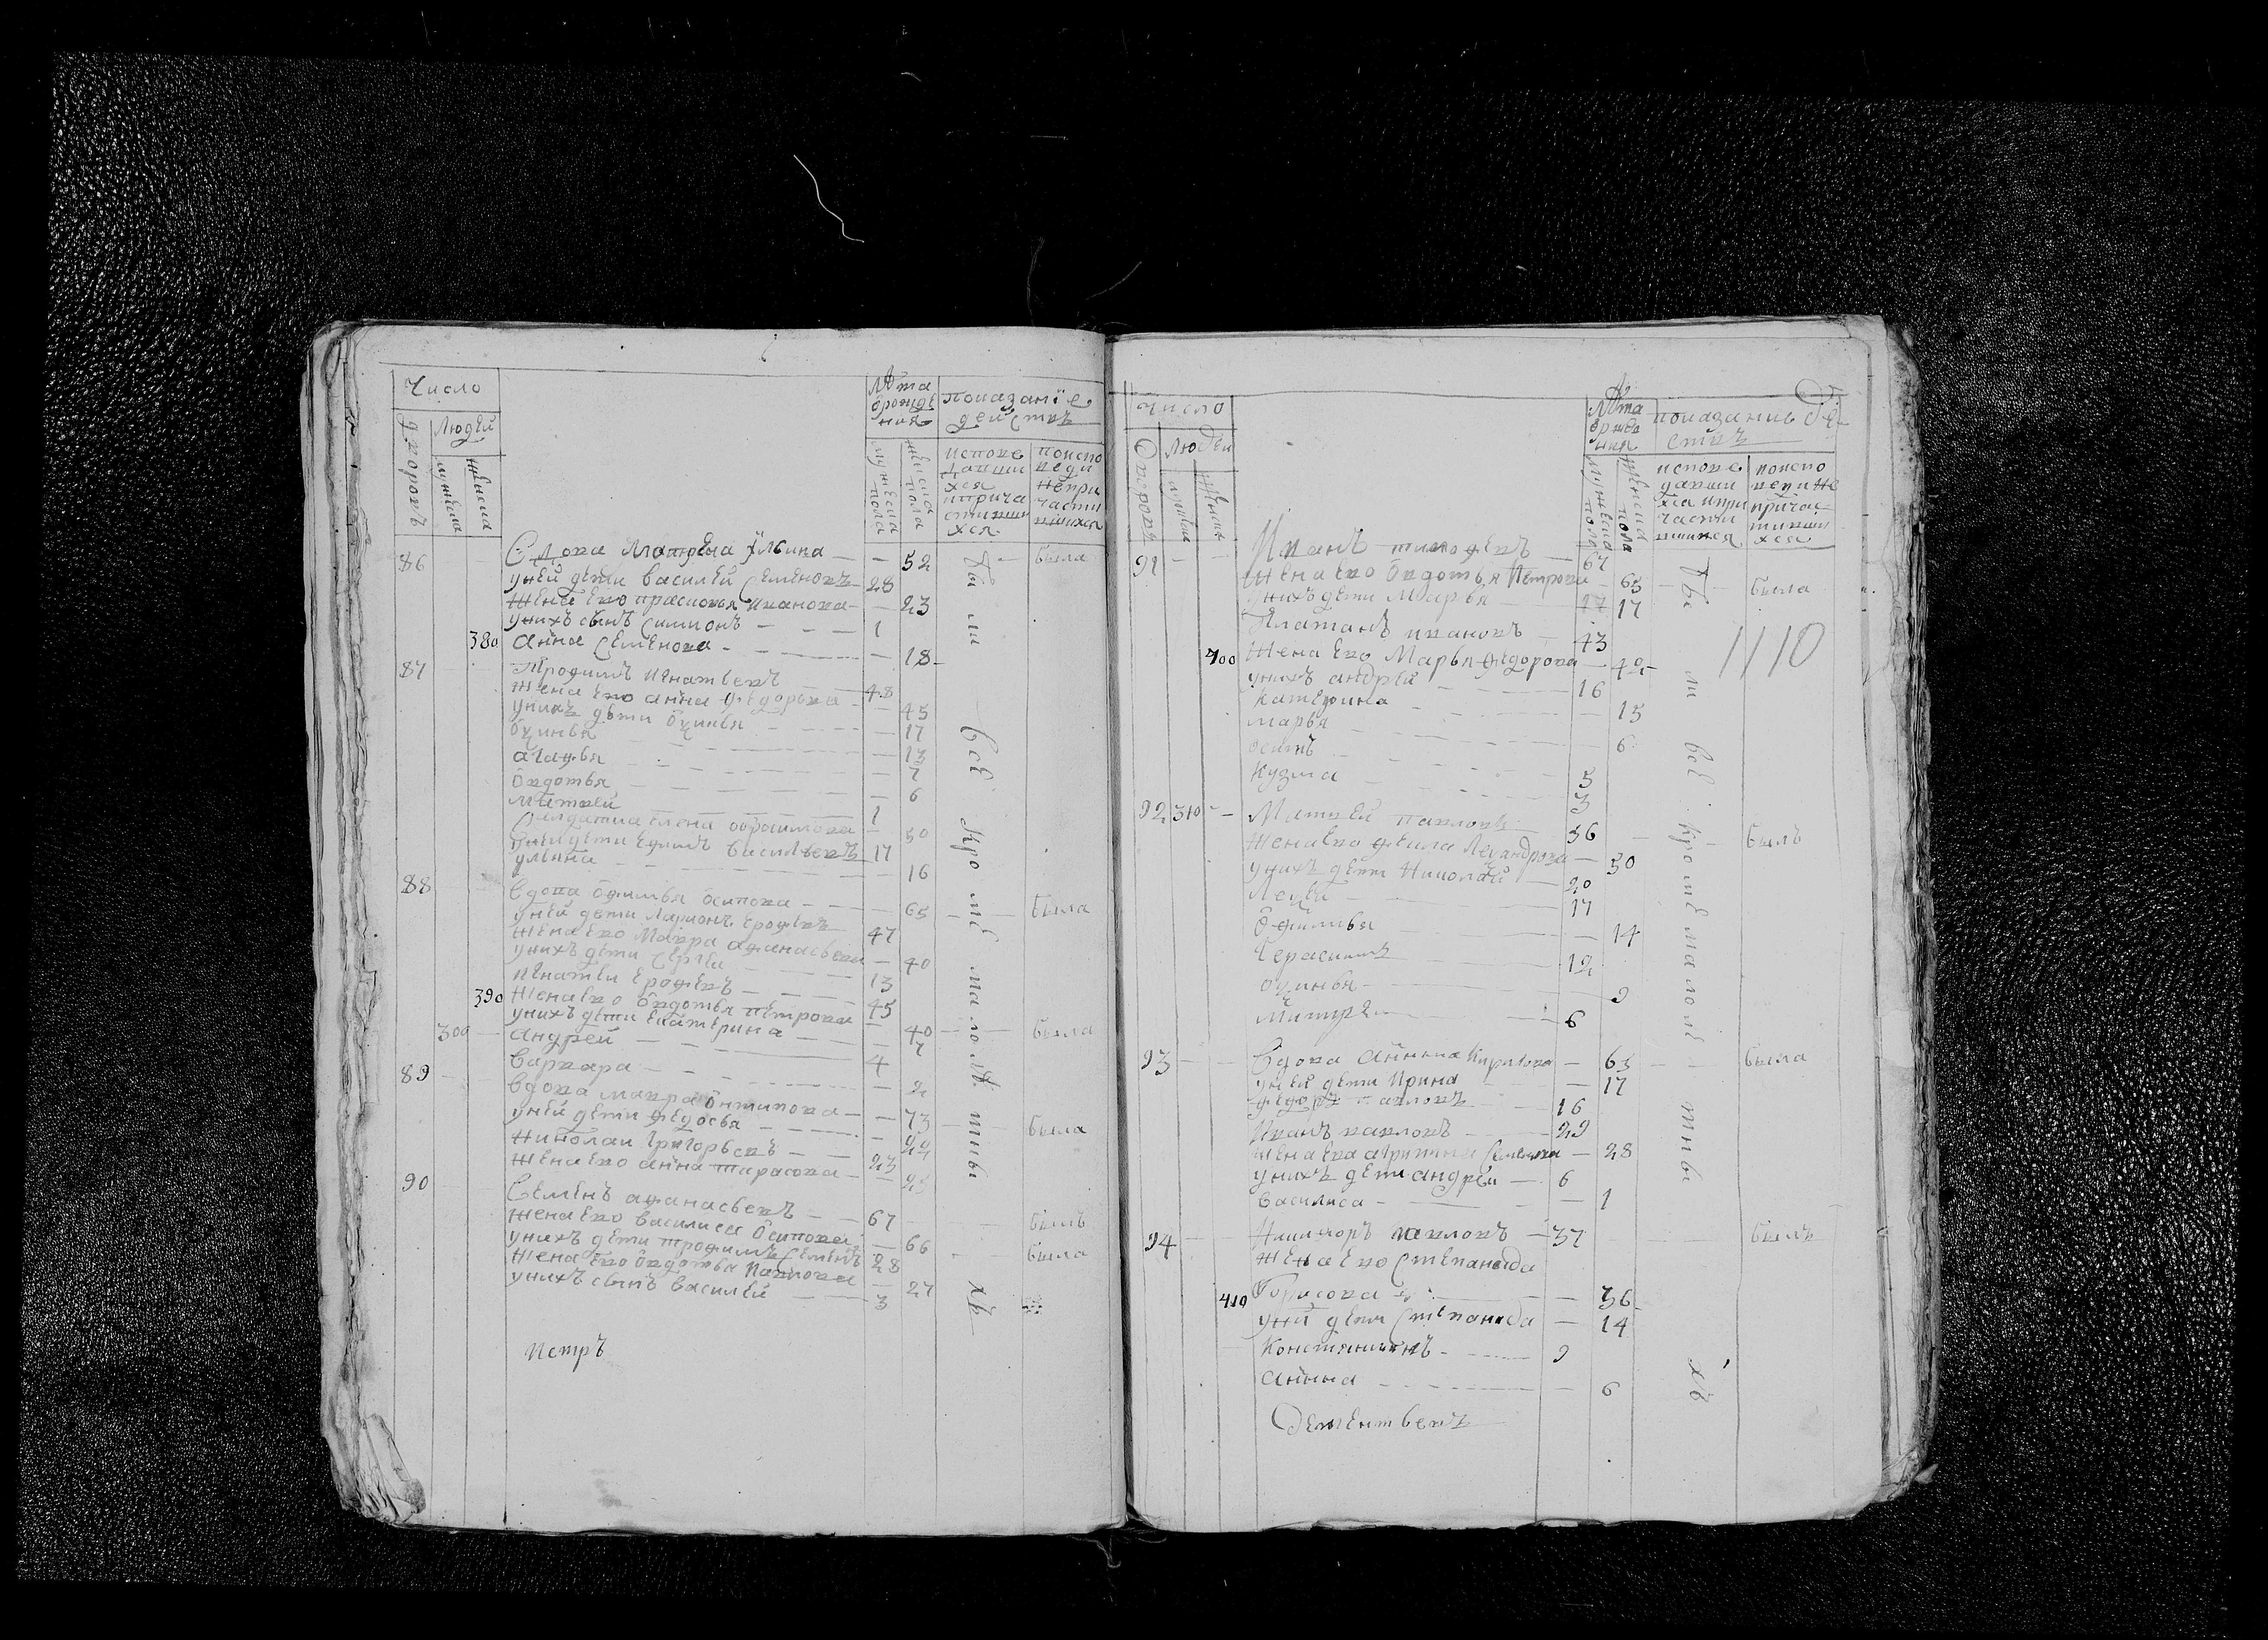 Число
Людей
дворовъ
мужеска
женска
лѣта
ѿрожде
нія
мужеска пола
женска пола
показаніе
действъ
испове
давши
хся
ипричa
стивши
хся
поиспо
веди
непри
части
вшихся
86 Вдова Матрена Ульина 52 была
уней дети василей Семеновъ 28
жена ево прасковья Иванова 23
унихъ сынъ Симионъ 1
380 анна Семенова 18
87 Трофимъ Игнатьевъ 48
жена ево анна федорова 45
унихъ дети Ѿксинья 17
Ѿксинья 13
агафья 7
Ѿвдотья 6
Матвей 1
Салдатка елена 50
уней дети Ефимъ Васильевъ 17
ульяна 16
88 Вдова Ѿфимья осипова 65 была
уней дети Ларионъ Ерофеевъ 47
жена ево Мавра афанасьева 40
унихъ дети Сергей 13
Игнатей Ерофеевъ 45
390 жена ево Ѿвдотья петрова 40 была
унихъ дети екатерина 7
300 андрей 4
варвара 2
89 вдова мавра антипова 73 была
уней дети федосья
Николай Григорьевъ 23
жена ево анна тарасова 23
90 Семенъ афанасьевъ 67 былъ
жена ево василиса Осипова 66 была
унихъ дети трофимъ Семеновъ 28
жена ево Ѿвдотья Павлова 27
унихъ сынъ василей 3
Были всѣ кромѣ малолѣтныхъ
Петръ
Число
дворовъ
Людей
мужеска
женска
Лѣта
ѿрожде
нія
мужеска пола
женска пола
показание дей
ствъ
испове
давши
хся ипри
части
вшихся
поиспо
веди не
причас
тивши
хся
91 Иванъ тимофеевъ 67
жена ево Ѿвдотья Петрова 65 была
унихъ дети Марья 17
Платанъ ивановъ 43
400 жена ево Марья федорова 42
унихъ андрей 16
катерина 15
марья 6
осипъ 5
кузма 3
1110
92 310 Матвей павловъ 56 былъ
жена ево фекла 50
унихъ дети Николай 20
17
Ѿфимья 14
Герасимъ 12
Ѿксинья 9
Митрей 6
93 Вдова аннна Кирилова 63 была
уней дети Ирина 17
федоръ павловъ 16
Иванъ павловъ 29
жена ево агрипина Семенова 28
унихъ дети андрей 6
василиса 1
94 Никифоръ павловъ 37 былъ
жена ево Степанида
410 Борисова 36
уни дети Степанида 14
Константинъ 9
аннна 6
Были всѣ кромѣ малолѣтныхъ
Дементьевъ